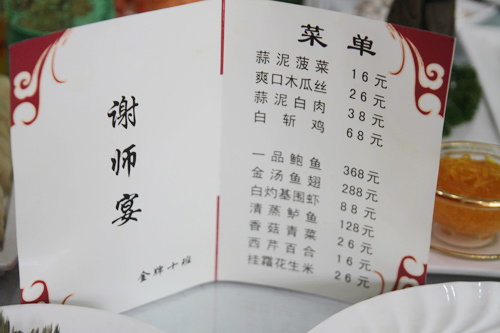 谢师宴
金牌十班
菜单
蒜泥菠菜 16元
爽口木瓜丝 26元
蒜泥白肉 38元
白斩鸡 68元
一品鲍鱼 368元
金汤鱼翅 288元
白灼基围虾 88元
清蒸鲈鱼 128元
香菇青菜 26元
西芹百合 16元
挂霜花生米 26元